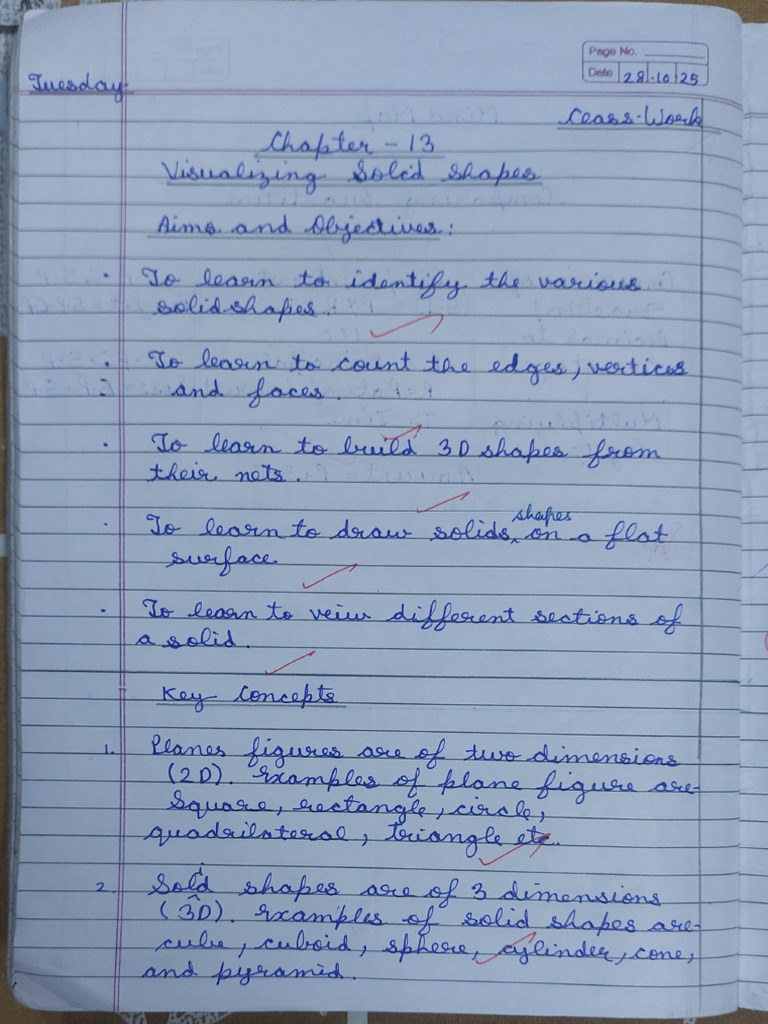 Page No.
Tuesday
Date 28-10-25
Class-Work
Chapter - 13
Visualizing Solid shapes
Aims and Objectives:
· To learn to identify the various
solid shapes.
· To learn to count the edges, vertices
and faces.
· To learn to build 3D shapes from
their nets.
· To learn to draw solids shapes on a flat
surface.
· To learn to veiw different sections of
a solid.
Key Concepts
1. Planes figures are of two dimensions
(2D). Examples of plane figure are-
Square, rectangle, circle,
quadrilateral, triangle etc.
2. Solid shapes are of 3 dimensions
(3D). Examples of solid shapes are-
cube, cuboid, sphere, cylinder, cone,
and pyramid.